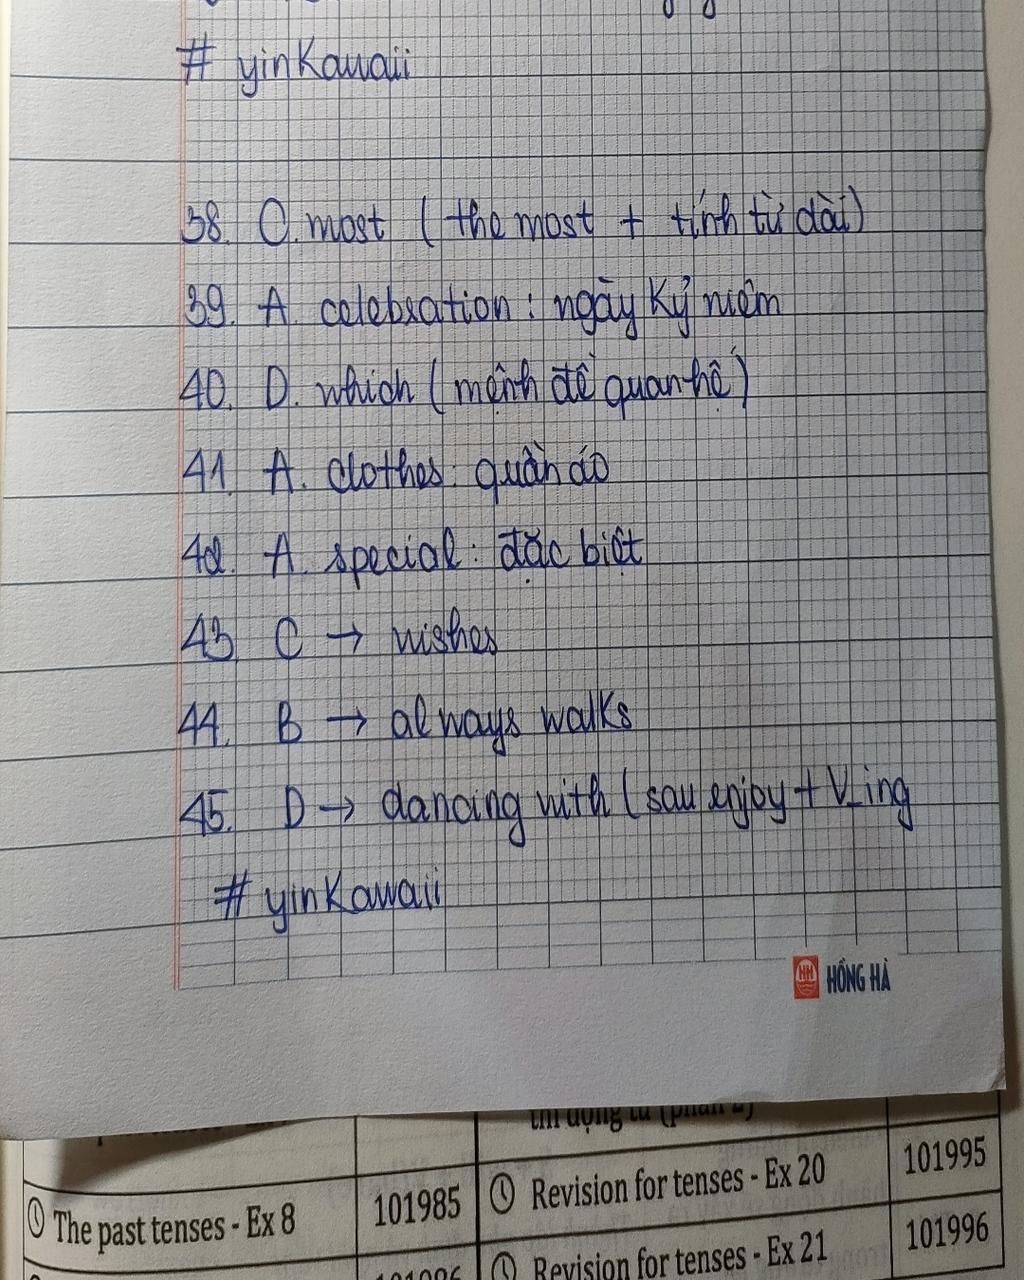 # yinKawaii
38. C. most ( the most + tính từ dài)
39. A. celebration : ngày kỷ niệm
40. D. which ( mệnh đề quan hệ)
41. A. clothes : quần áo
42. A. special : đặc biệt
43. C → wishes
44. B → always walks
45. D → dancing with ( sau enjoy + V_ing
# yinKawaii
HỒNG HÀ
thì động từ (phần 2)
The past tenses - Ex 8 101985 Revision for tenses - Ex 20 101995
Revision for tenses - Ex 21 101996